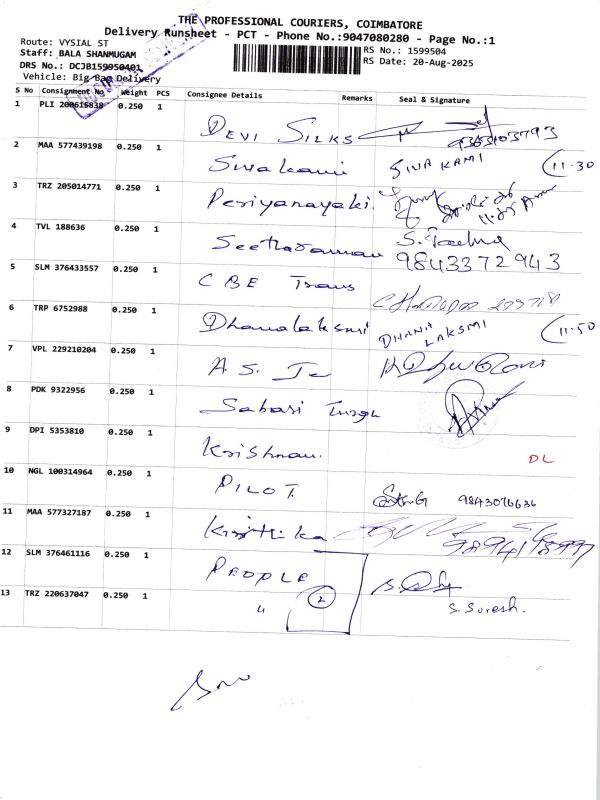 THE PROFESSIONAL COURIERS, COIMBATORE
Delivery Runsheet - PCT - Phone No.:9047080280 - Page No.:1
Route: VYSIAL ST
RS No.: 1599504
Staff: BALA SHANMUGAM
RS Date: 20-Aug-2025
DRS No.: DCJB159950401
Vehicle: Big Bag Delivery
S No Consignment No Weight PCS Consignee Details Remarks Seal & Signature
1 PLI 200615838 0.250 1 DEVI SILKS 9363103793
2 MAA 577439198 0.250 1 Sivakami SIVAKAMI 11.30
3 TRZ 205014771 0.250 1 Periyanayaki
4 TVL 188636 0.250 1 Seetharaman
9843372943
5 SLM 376433557 0.250 1 CBE Trans
6 TRP 6752988 0.250 1 Dhanalaksmi DHANA LAKSMI 11.50
7 VPL 229210204 0.250 1 A S.
8 PDK 9322956 0.250 1 Sabari
9 DPI 5353810 0.250 1 Krishnan. DL
10 NGL 100314964 0.250 1 PILOT 9843076636
11 MAA 577327187 0.250 1 Kirthika
12 SLM 376461116 0.250 1 PEOPLE
13 TRZ 220637047 0.250 1 " 2 S. Suresh.